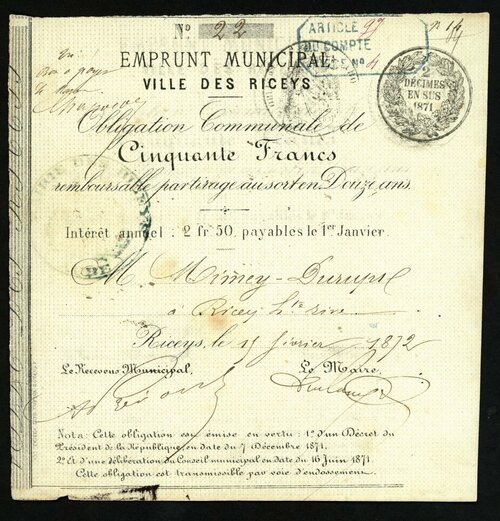 N° 22
ARTICLE 97
DU COMPTE
N° 4
N° 14
EMPRUNT MUNICIPAL
VILLE DES RICEYS
2
DÉCIMES
EN SUS
1871
Vu
Bon à payer
Le Maire
Obligation Communale de
Cinquante Francs
remboursable par tirage au sort en Douze ans.
Intérêt annuel : 2 fr 50, payables le 1er Janvier.
M. Mimey-Durupt
à Ricey hte rive
Riceys, le 15 février 1872
Le Receveur Municipal,
Le Maire,
Nota : Cette obligation est émise en vertu : 1° d'un Décret du
Président de la République en date du 7 Décembre 1871.
2° Et d'une délibération du Conseil municipal en date du 16 Juin 1871.
Cette obligation est transmissible par voie d'endossement.